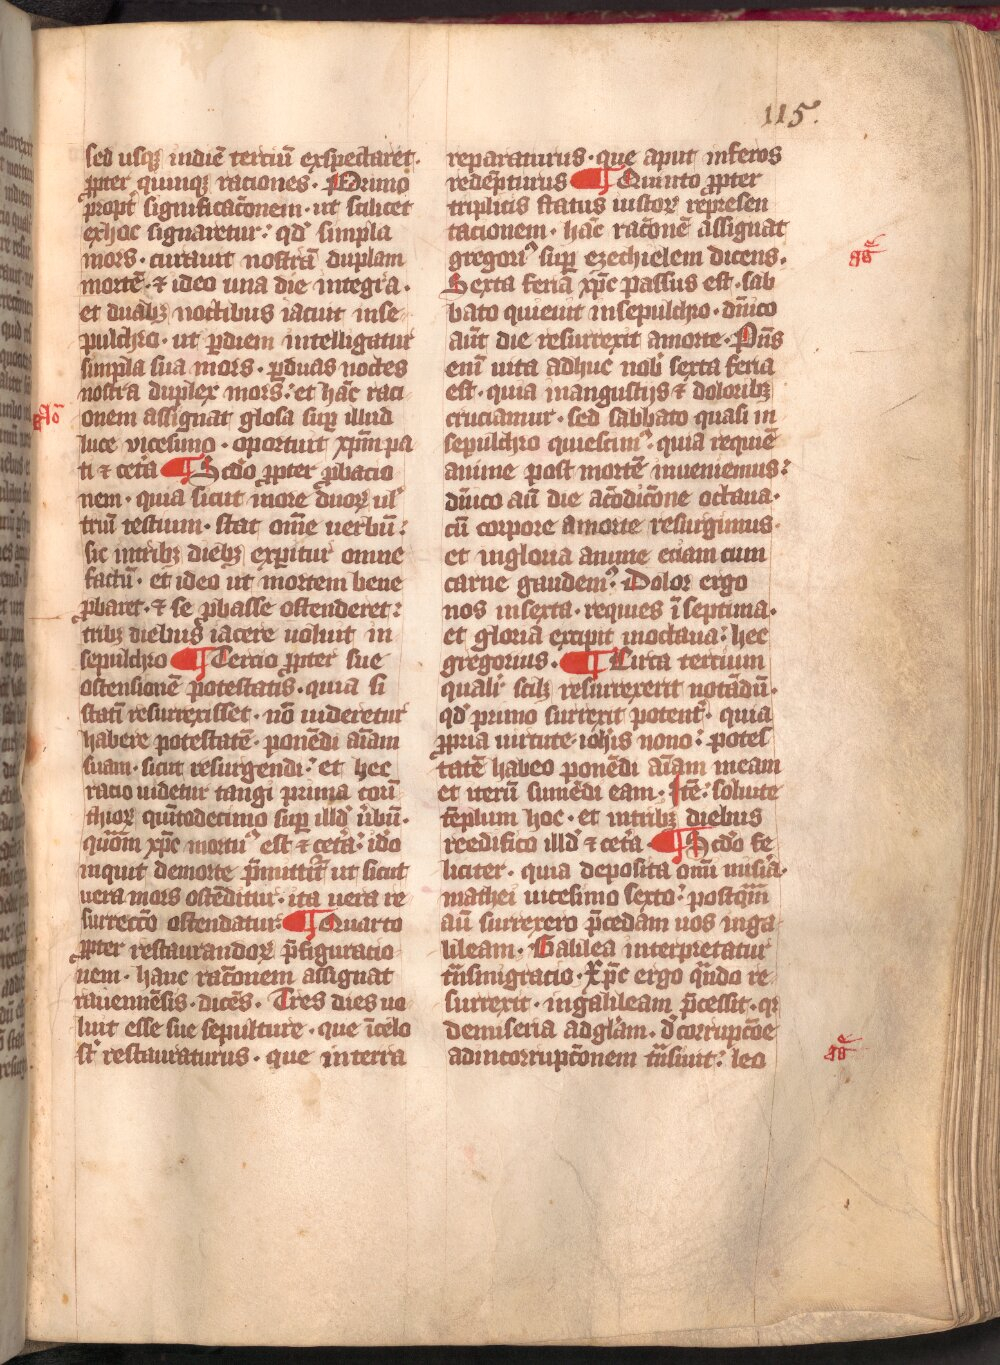 115.
sed usqꝫ indiē tertiū exspectaret·
ꝓpter quinqꝫ raciones· Primo
propt̄ significac̄onem· ut scilicet
exhoc signaretur: qd̄ simpla
mors· curauit nostrā duplam
mortē· ⁊ ideo una die integra·
et duabꝫ noctibus iacuit inse-
pulchro· ut ꝑdiem intelligatur
simpla sua mors· ꝑduas noctes
nostra duplex mors: et hāc raci
onem assignat glosa suꝑ illud
luce vicesimo· oportuit xp̄m pa
ti ⁊ cet̄a ¶ Scd̄o ꝓpter ꝓbacio
nem· quia sicut more duoꝝ ul̓
triū testium· stat om̄e uerbū:
sic intribꝫ diebꝫ exꝑitur omne
factū· et ideo ut mortem bene
ꝓbaret· ⁊ se ꝓbasse ostenderet:
tribꝫ diebus iacere uoluit in
sepulchro ¶ Tercio ꝓpter sue
ostensionē potestatis· quia si
statī resurrexisset· nō uideretur
habere potestatē· ponēdi aīam
suam· sicut resurgendi: et hec
racio uidetur tangi prima corū
thioꝝ qūitodecimo suꝑ illd̓ ūbū·
quōm xp̄c mortuꝰ est ⁊ cet̄a: iđo
inquit demorte p̄mittit̄ ut sicut
uera mors ostēditur· ita uera re
surrecc̄o ostendatur: ¶ Quarto
ꝓpter restaurandoꝝ p̄figuracio
nem· hanc rac̄onem assignat
rauennēsis· dicēs· Tres dies uo
luit esse sue sepulture· que īcelo
st̄ restauraturus· que interra
reparaturus· que aput inferos
redēpturus ¶ Quinto ꝓpter
triplicis status iustoꝝ represen
tacionem· hāc rac̄onē assignat
gregoriꝰ suꝑ ezechielem dicens·
Sexta feria xp̄c passus est· sab
bato quieuit insepulchro· dn̄ico
aūt die resurrexit amorte· Pn̄s
enī uita adhuc nob̓ sexta feria
est· quia inangustijs ⁊ doloribꝫ
cruciamur· sed sabbato quasi in
sepulchro quiescimꝰ· quia requiē
anime post mortē inueniemus:
dn̄ico aū die ac̄odic̄one octaua·
cū corpore amorte resurgimus·
et ingloria anime eciam cum
carne gaudemꝰ· Dolor ergo
nos insexta· requies ī septima·
et gloria excipit inoctaua: hec
gregorius· ¶ Circa tertium
qualit̓ scilꝫ resurrexerit notādū·
qd̄ primo surrexit potent̓· quia
ꝓpria uirtute· ioh̄is nono: potes
tatē habeo ponēdi aīam meam
et iterū sumēdi eam· Itē: soluite
tēplum hoc· et intribꝫ diebus
reedifico illd̓ ⁊ cet̄a· ¶ Scd̄o fe
liciter· quia deposita om̄i misīa·
mathei uicesimo sexto: postq̄m
aū surrexero p̄cedam uos inga
lileam· Galilea interpretatur
tn̄smigracio· Xp̄c ergo qn̄do re-
surrexit· ingalileam p̄cessit· qꝛ
demiseria adgl̄iam· đcorrupc̄oe
adincorrupc̄onem tn̄siuit: leo